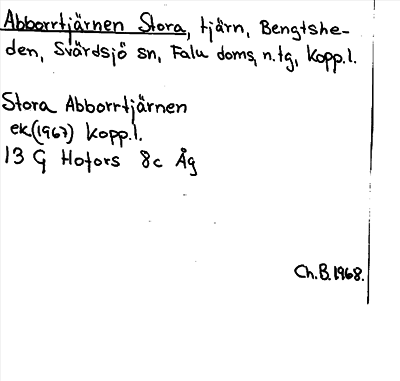 Abborrtjärnen Stora, tjärn, Bengtshe-
den, Svärdsjö sn, Falu doms. n.tg, Kopp.l.
Stora Abborrtjärnen
ek.(1967) Kopp.l.
13 G Hofors 8c Åg
Ch.B.1968.